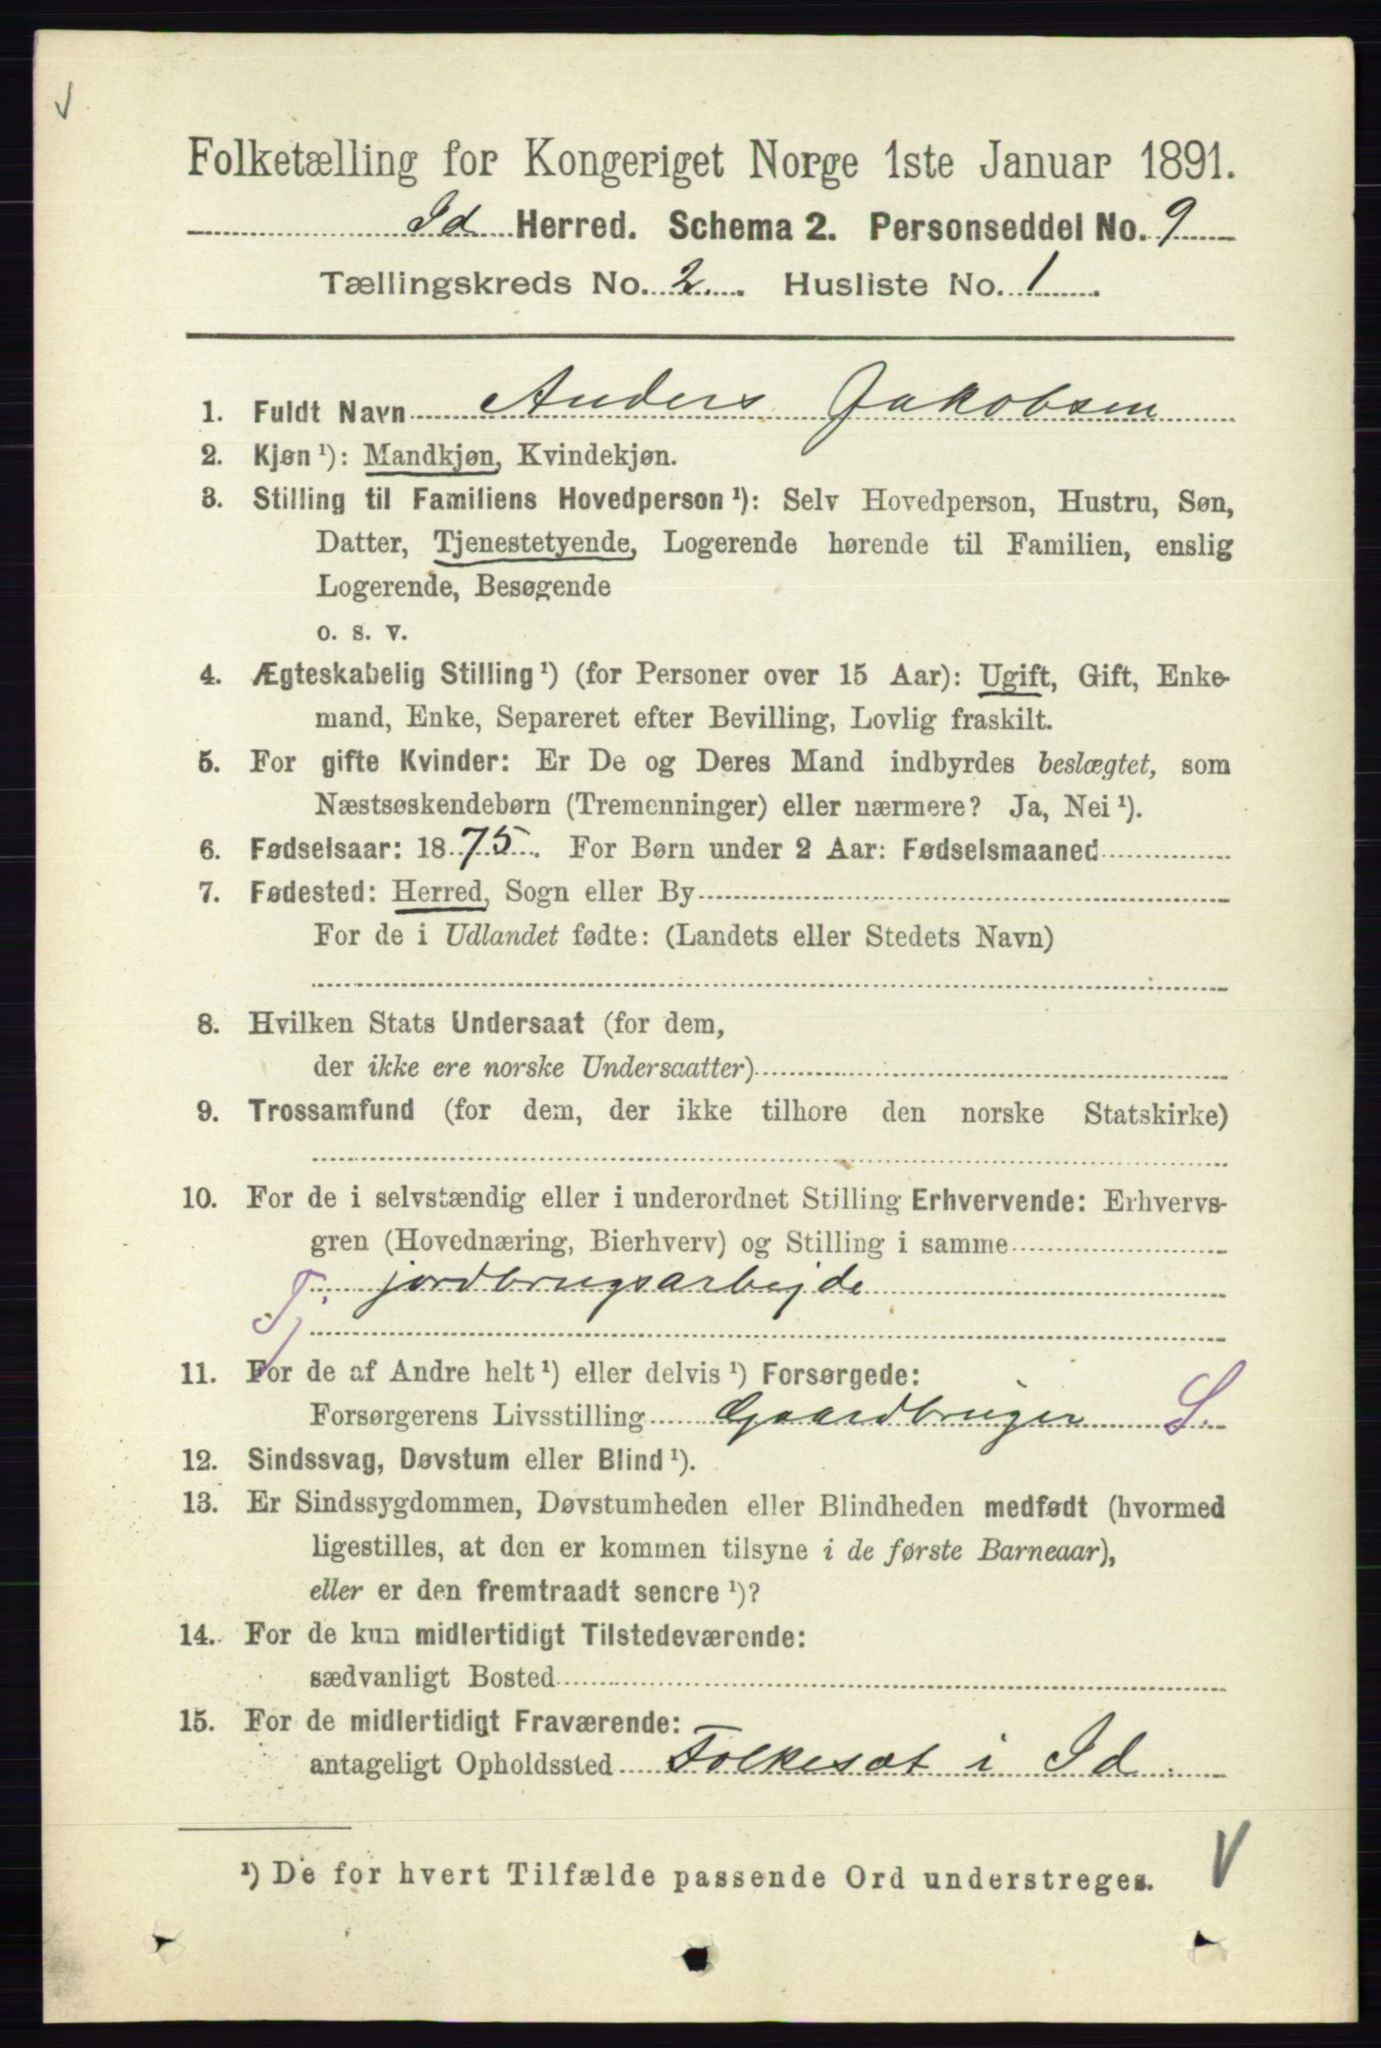 Folketælling for Kongeriget Norge 1ste Januar 1891.
Id Herred. Schema 2. Personseddel No. 9
Tællingskreds No. 2. Husliste No. 1.
1. Fuldt Navn Anders Jakobsen
2. Kjøn ¹): Mandkjøn, Kvindekjøn.
3. Stilling til Familiens Hovedperson ¹): Selv Hovedperson, Hustru, Søn,
Datter, Tjenestetyende, Logerende hørende til Familien, enslig
Logerende, Besøgende
o. s. v.
4. Ægteskabelig Stilling ¹) (for Personer over 15 Aar): Ugift, Gift, Enke-
mand, Enke, Separeret efter Bevilling, Lovlig fraskilt.
5. For gifte Kvinder: Er De og Deres Mand indbyrdes beslægtet, som
Næstsøskendebørn (Tremenninger) eller nærmere? Ja, Nei ¹).
6. Fødselsaar: 1875. For Børn under 2 Aar: Fødselsmaaned
7. Fødested: Herred, Sogn eller By
For de i Udlandet fødte: (Landets eller Stedets Navn)
8. Hvilken Stats Undersaat (for dem,
der ikke ere norske Undersaatter)
9. Trossamfund (for dem, der ikke tilhore den norske Statskirke)
10. For de i selvstændig eller i underordnet Stilling Erhvervende: Erhvervs-
gren (Hovednæring, Bierhverv) og Stilling i samme
Tj. jordbrugsarbejde
11. For de af Andre helt ¹) eller delvis ¹) Forsørgede:
Forsørgerens Livsstilling Gaardbruger S.
12. Sindssvag, Døvstum eller Blind ¹).
13. Er Sindssygdommen, Døvstumheden eller Blindheden medfødt (hvormed
ligestilles, at den er kommen tilsyne i de første Barneaar),
eller er den fremtraadt senere ¹)?
14. For de kun midlertidigt Tilstedeværende:
sædvanligt Bosted
15. For de midlertidigt Fraværende:
antageligt Opholdssted Folkesæt i Id
¹) De for hvert Tilfælde passende Ord understreges.